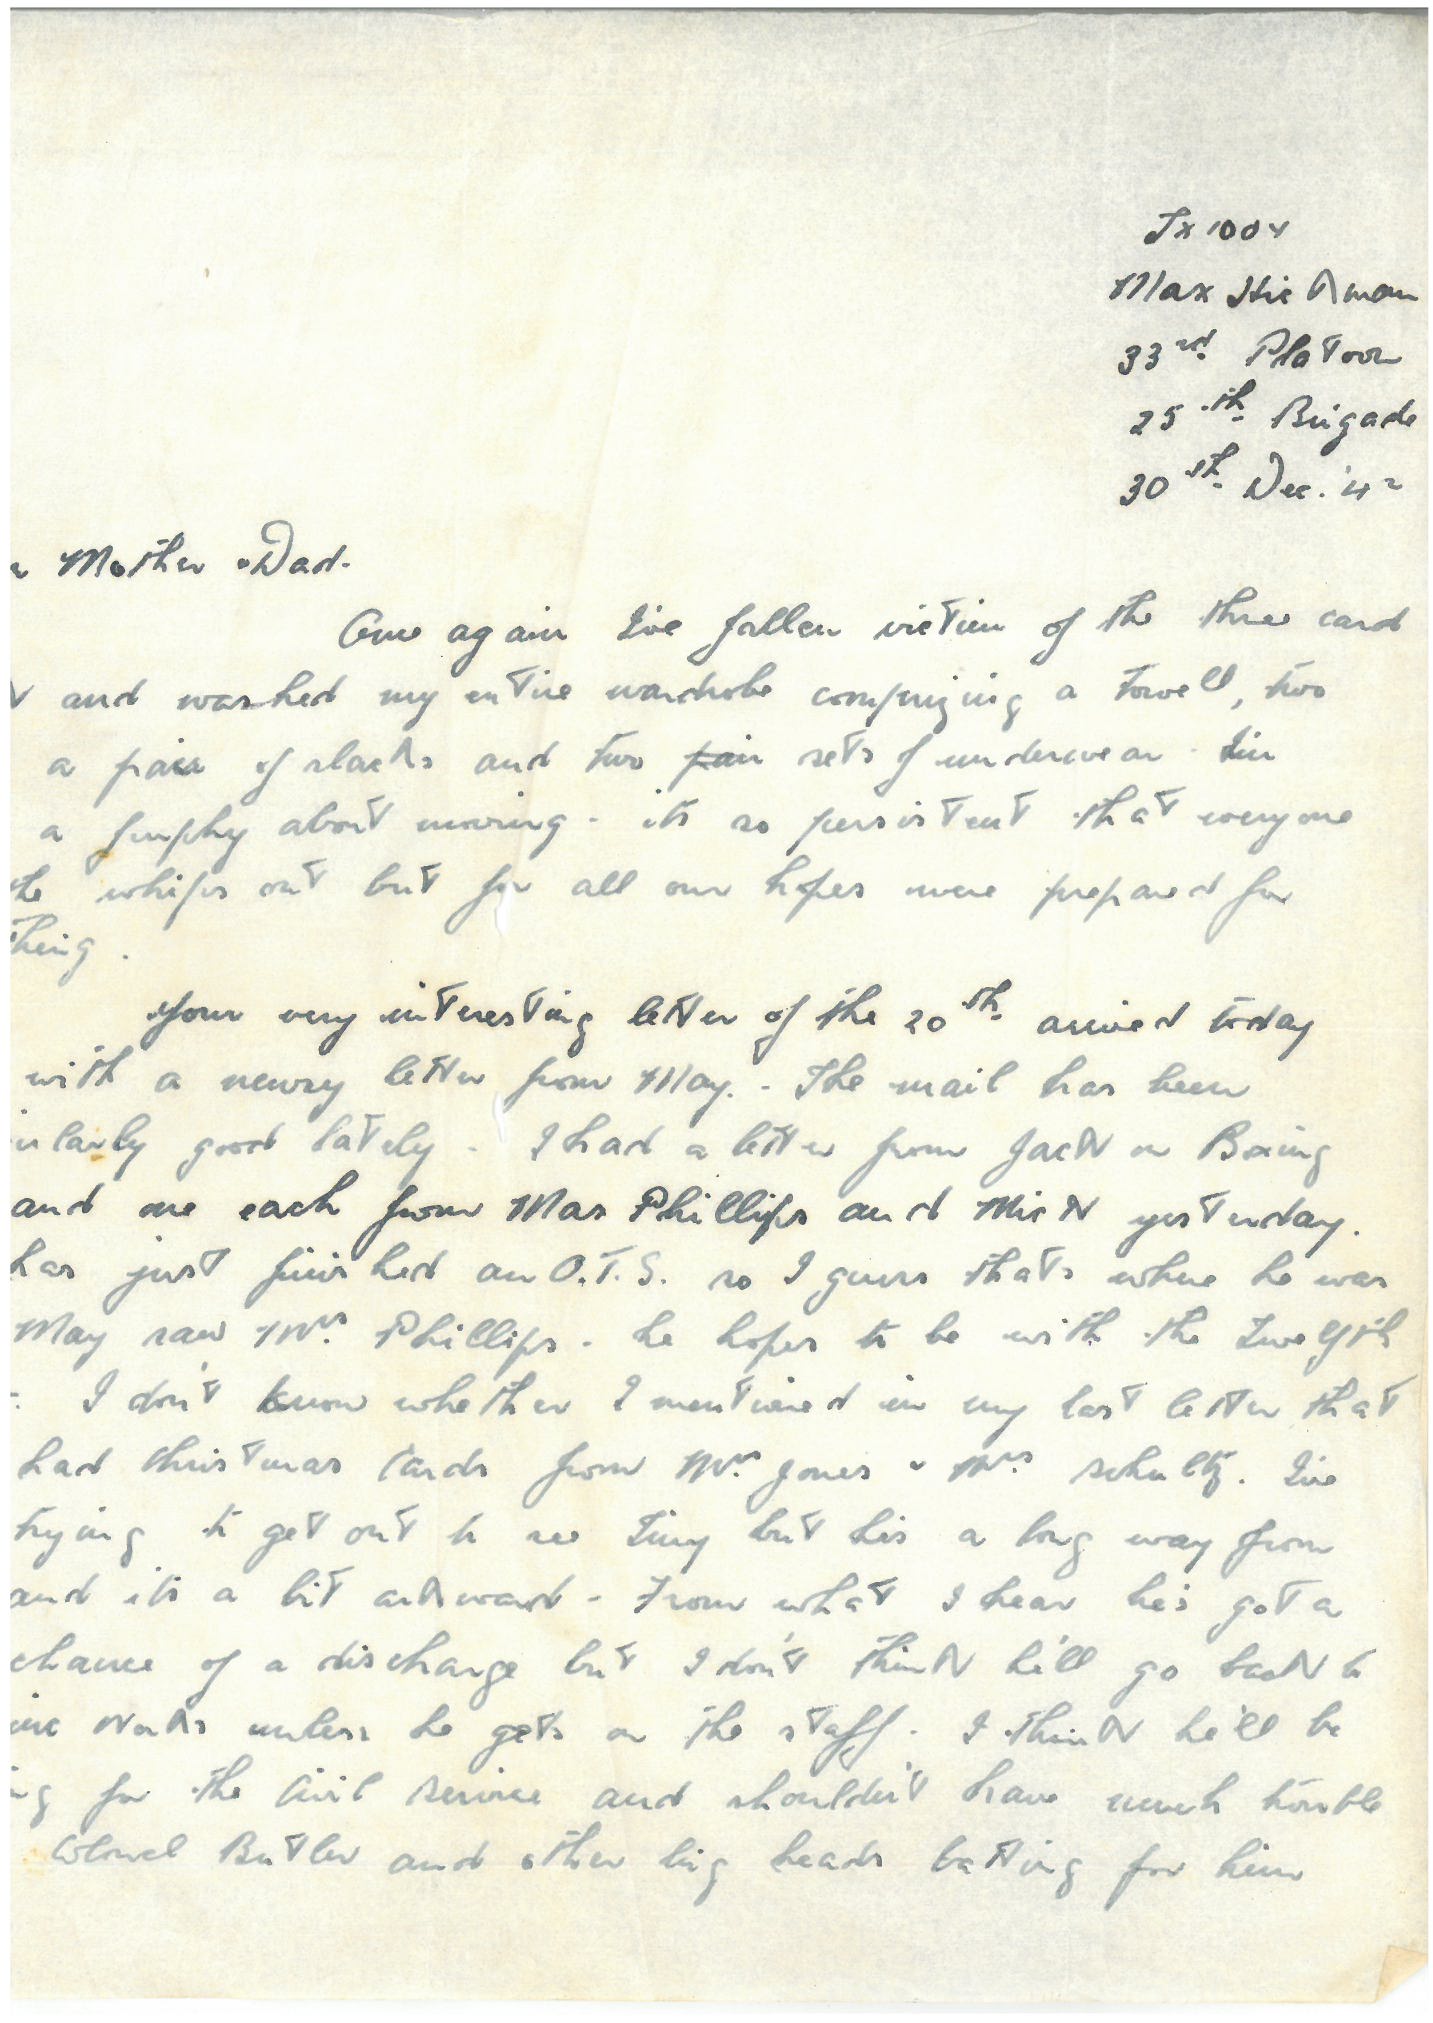 Tx 1004
Max Hickman
33rd. Platoon
25th. Brigade
30th. Dec. '42
Mother & Dad.
Once again I've fallen victim of the three card
and washed my entire wardrobe comprising a towell, two
a pair of slacks and two pair sets of underwear. I'm
a furphy about moving - its so persistent that everyone
the whips out but for all our hopes were prepared for
thing.
Your very interesting letter of the 20th. arrived today
with a newsy letter from May. - The mail has been
ularly good lately - I had a letter from Jack on Boxing
and one each from Max Phillips and Mick yesterday.
has just finished an O.T.S. so I guess thats where he was
May saw Mrs Phillips - he hopes to be with the Twelfth
- I don't know whether I mentioned in my last letter that
had Christmas Cards from Mrs Jones & Mrs Schultz. I've
trying to get out to see Tiny but his a long way from
and its a bit awkward - From what I hear he's got a
chance of a discharge but I don't think he'll go back to
inc Works unless he gets on the staff. I think he'll be
ng for the Civil Service and shouldn't have much trouble
Colonel Butler and other big heads batting for him